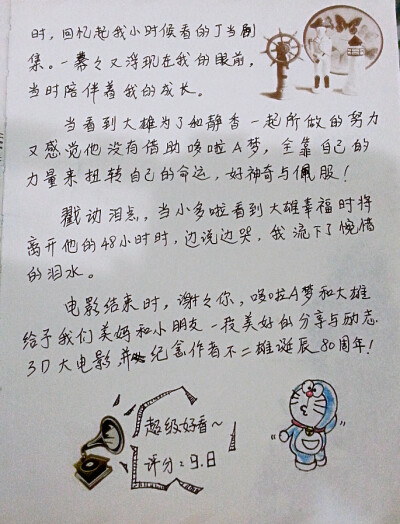 时，回忆起我小时候看的丁当剧
集。一幕々又浮现在我的眼前，
当时陪伴着我的成长。
当看到大雄为了和静香一起所做的努力
又感觉他没有借助哆啦A梦，全靠自己的
力量来扭转自己的命运，好神奇与佩服！
戳动泪点，当小多啦看到大雄幸福时将
离开他的48小时时，边说边哭，我流下了惋惜
的泪水。
电影结束时，谢々你，哆啦A梦和大雄
给予我们美妈和小朋友一段美好的分享与励志
3D大电影，并纪念作者不二雄诞辰80周年！
超级好看～
评分：9.8